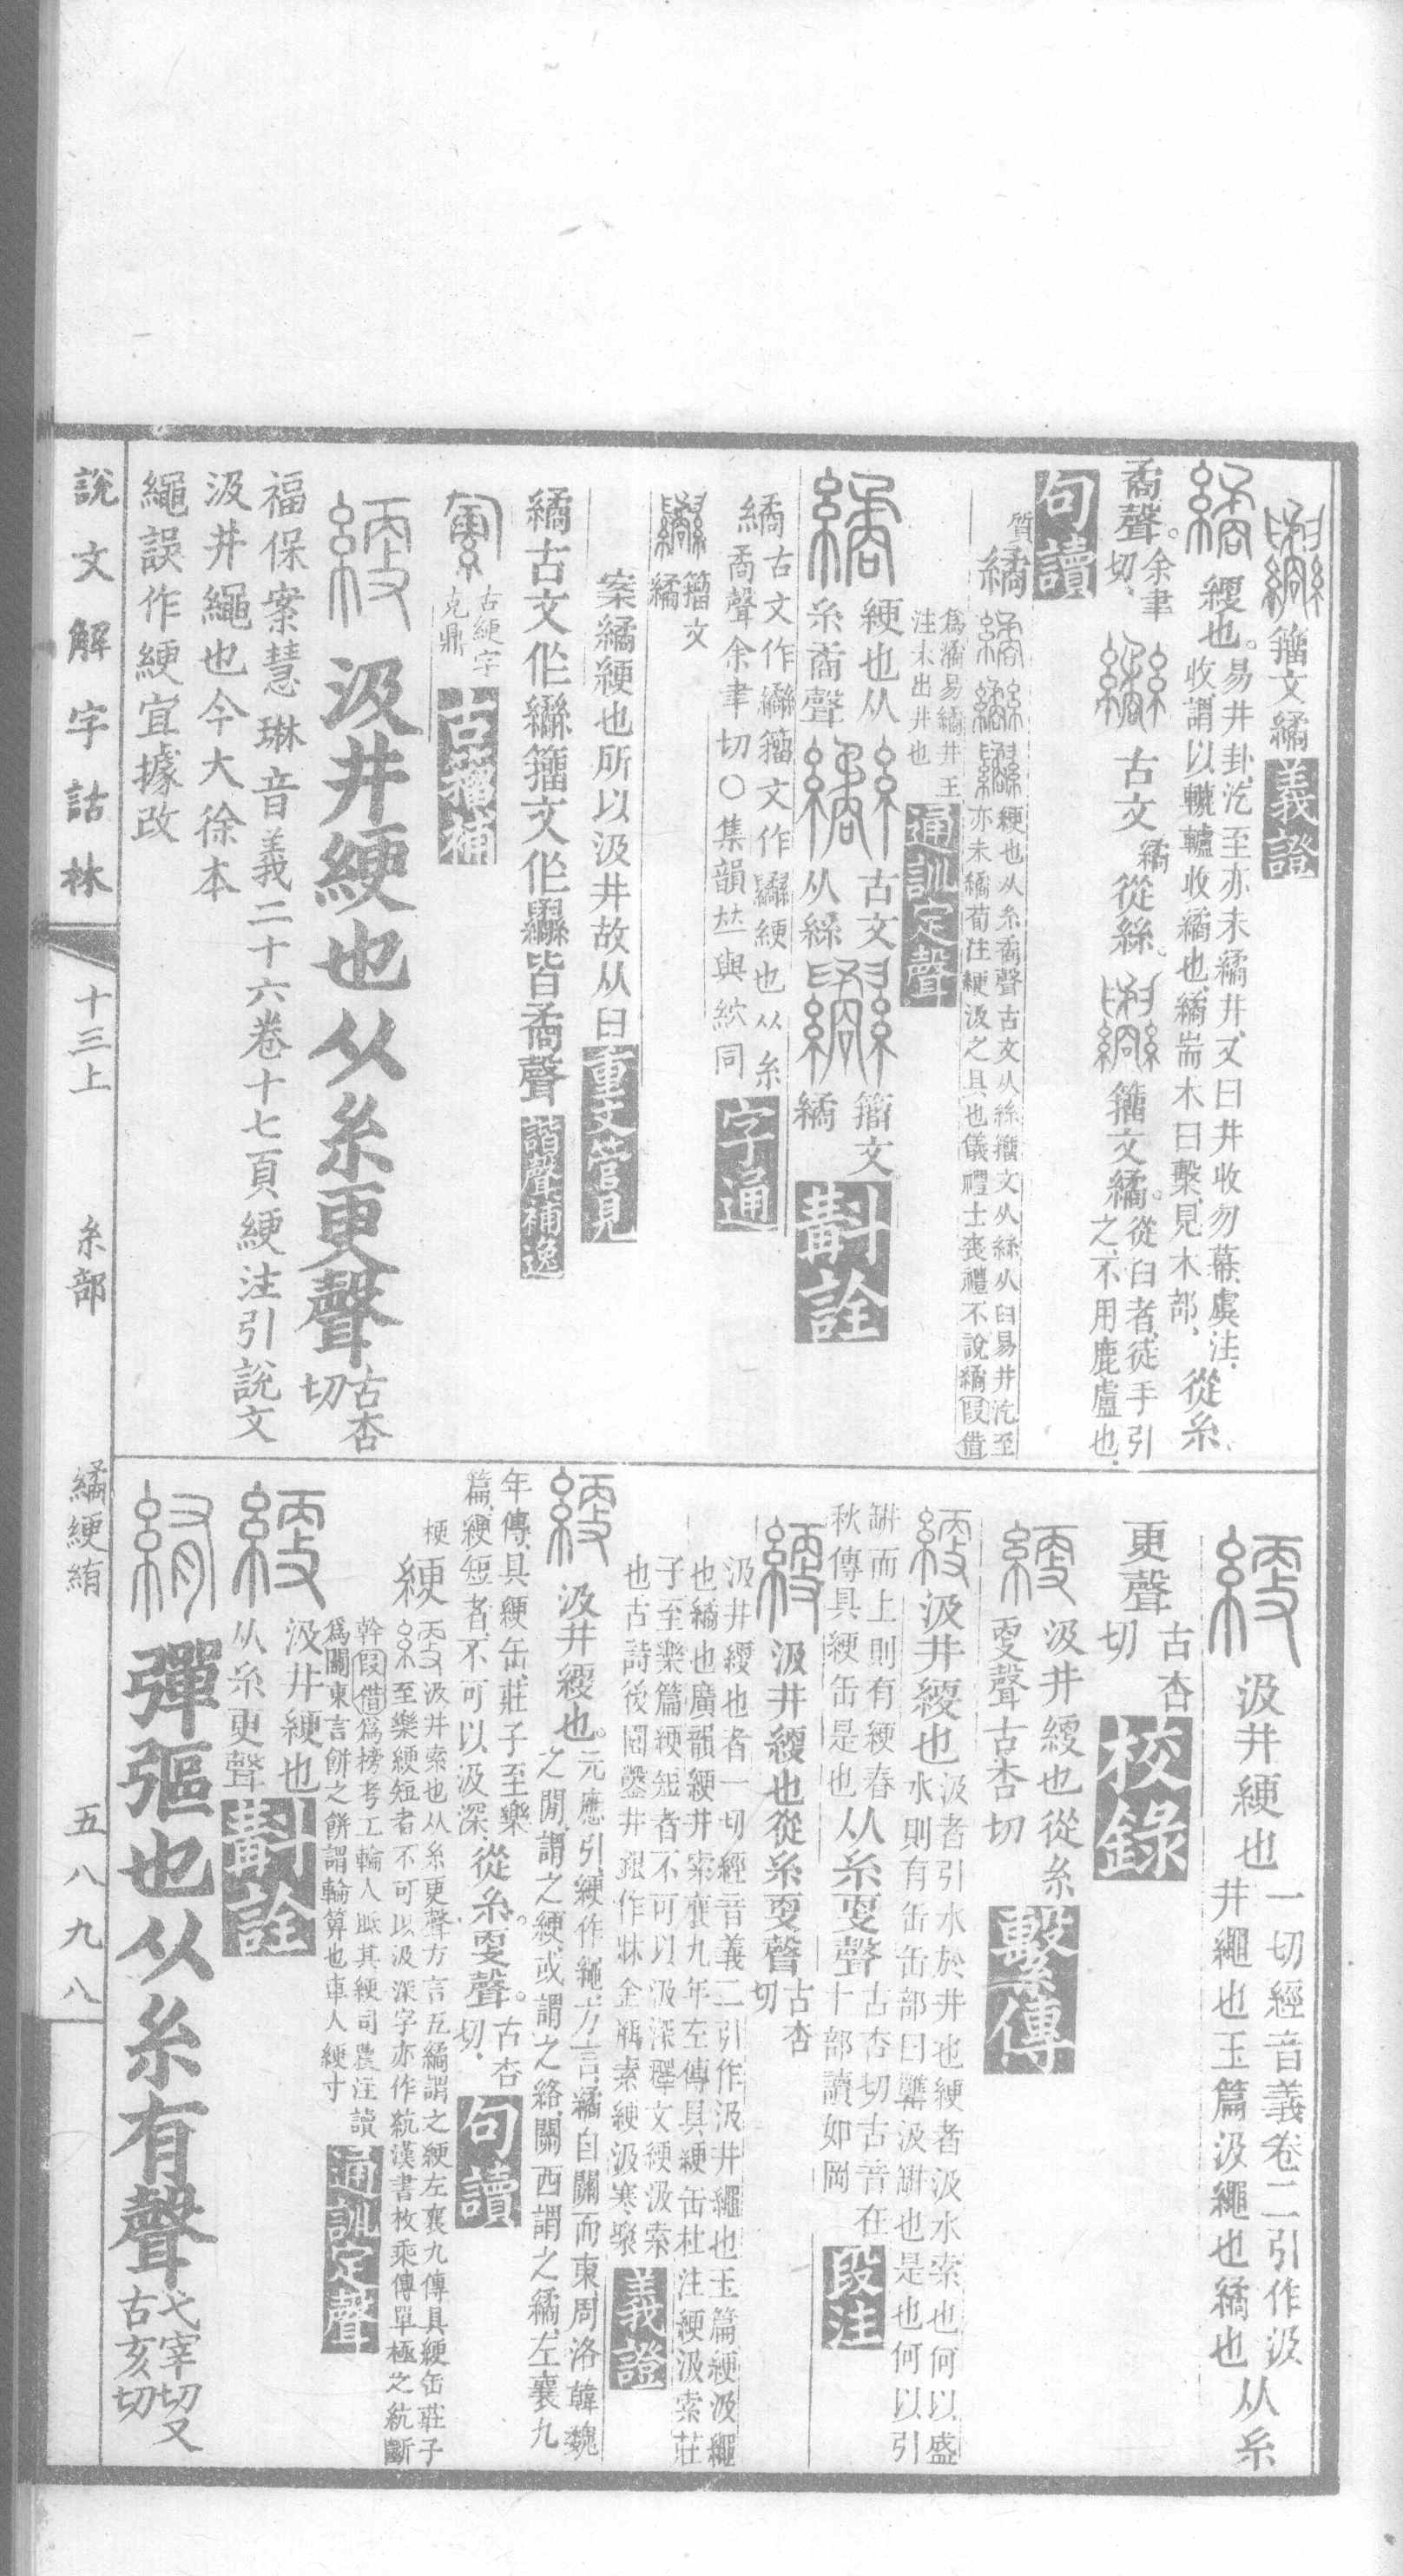 籀文繘義證
綆也。易井卦、汔至亦未繘井、又曰井收勿幕、虞注、
收、謂以轆轤收繘也、繘耑木曰槷、見木部、從糸、
矞聲。余聿切、
古文繘從絲。
籀文繘。從臼者、徒手引之、不用鹿盧也、
句讀
質
繘
綆也从糸矞聲古文从絲籀文从絲从臼易井汔至
亦未繘荀注綆汲之具也儀禮士喪禮不說繘叚借
爲潏易繘井王
注未出井也
通訓定聲
綆也从
糸矞聲
古文
从絲
籀文
繘
斠詮
繘
古文作 籀文作 綆也从糸
矞聲余聿切○集韻竝與 同
字通
籀文
繘
案繘綆也所以汲井故从臼重文管見
繘古文作 籀文作 皆矞聲諧聲補逸
古綆字
克鼎
古籀補
汲井綆也从糸更聲古杏切
福保案慧琳音義二十六卷十七頁綆注引說文
汲井繩也今大徐本
繩誤作綆宜據改
汲井綆也一切經音義卷二引作汲
井繩也玉篇汲繩也繘也从糸
更聲古杏切校錄
汲井綆也從糸
㪅聲古杏切
繫傳
汲井綆也汲者引水於井也綆者汲水索也何以盛
水則有缶缶部曰䍌汲缾也是也何以引
缾而上則有綆春
秋傳具綆缶是也
从糸㪅聲
古杏切古音在
十部讀如岡
段注
汲井綆也從糸㪅聲古杏切
汲井綆也者一切經音義二引作汲井繩也玉篇綆汲繩
也繘也廣韻綆井索襄九年左傳具綆缶杜注綆汲索莊
子至樂篇綆短者不可以汲深釋文綆汲索
也古詩後園鑿井銀作牀金瓶素綆汲寒漿
義證
汲井綆也。元應引、綆作繩、方言、繘自關而東周洛韓魏
之閒、謂之綆、或謂之絡、關西謂之繘、左襄九
年傳、具綆缶、莊子至樂
篇、綆短者、不可以汲深、
從糸。㪅聲。古杏切、
句讀
梗
綆
汲井索也从糸更聲方言五繘謂之綆左襄九傳具綆缶莊子
至樂綆短者不可以汲深字亦作統漢書枚乘傳單極之統斷
幹叚借爲榜考工輪人眡其綆司農注讀
爲關東言餅之餅謂輪箄也車人綆寸
通訓定聲
汲井綆也
从糸更聲
斠詮
彈彄也从糸有聲弋宰切又
古亥切
說文解字詁林 十三上 糸部 繘綆絠 五八九八